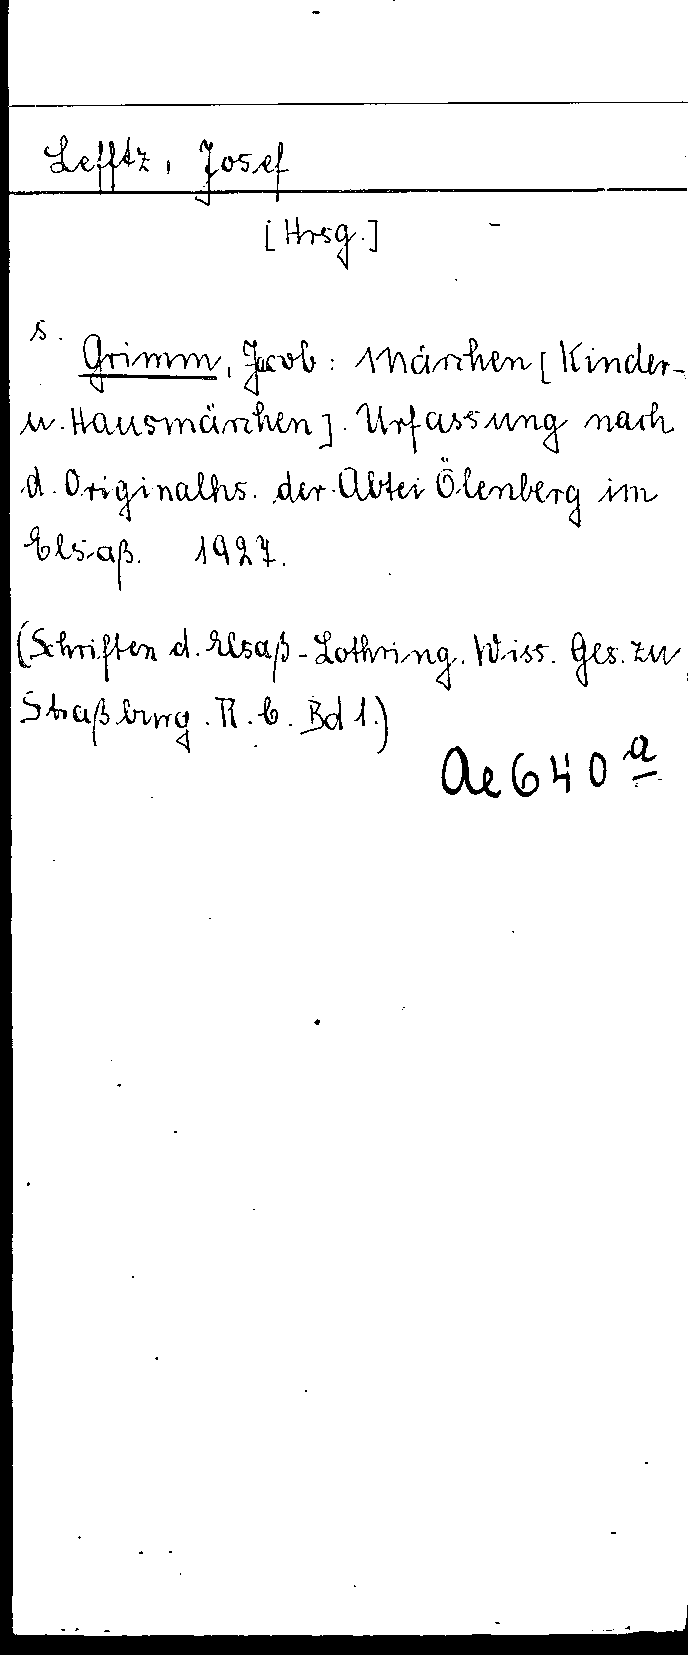 Lefftz, Josef
[Hrsg.]
s.
Grimm, Jacob: Märchen [Kinder-
u. Hausmärchen]. Urfassung nach
d. Originalhs. der Abtei Ölenberg im
Elsaß. 1927.
(Schriften d. Elsaß-Lothring. Wiss. Ges. zu
Straßburg. R. C. Bd 1.)
Ae 640 a